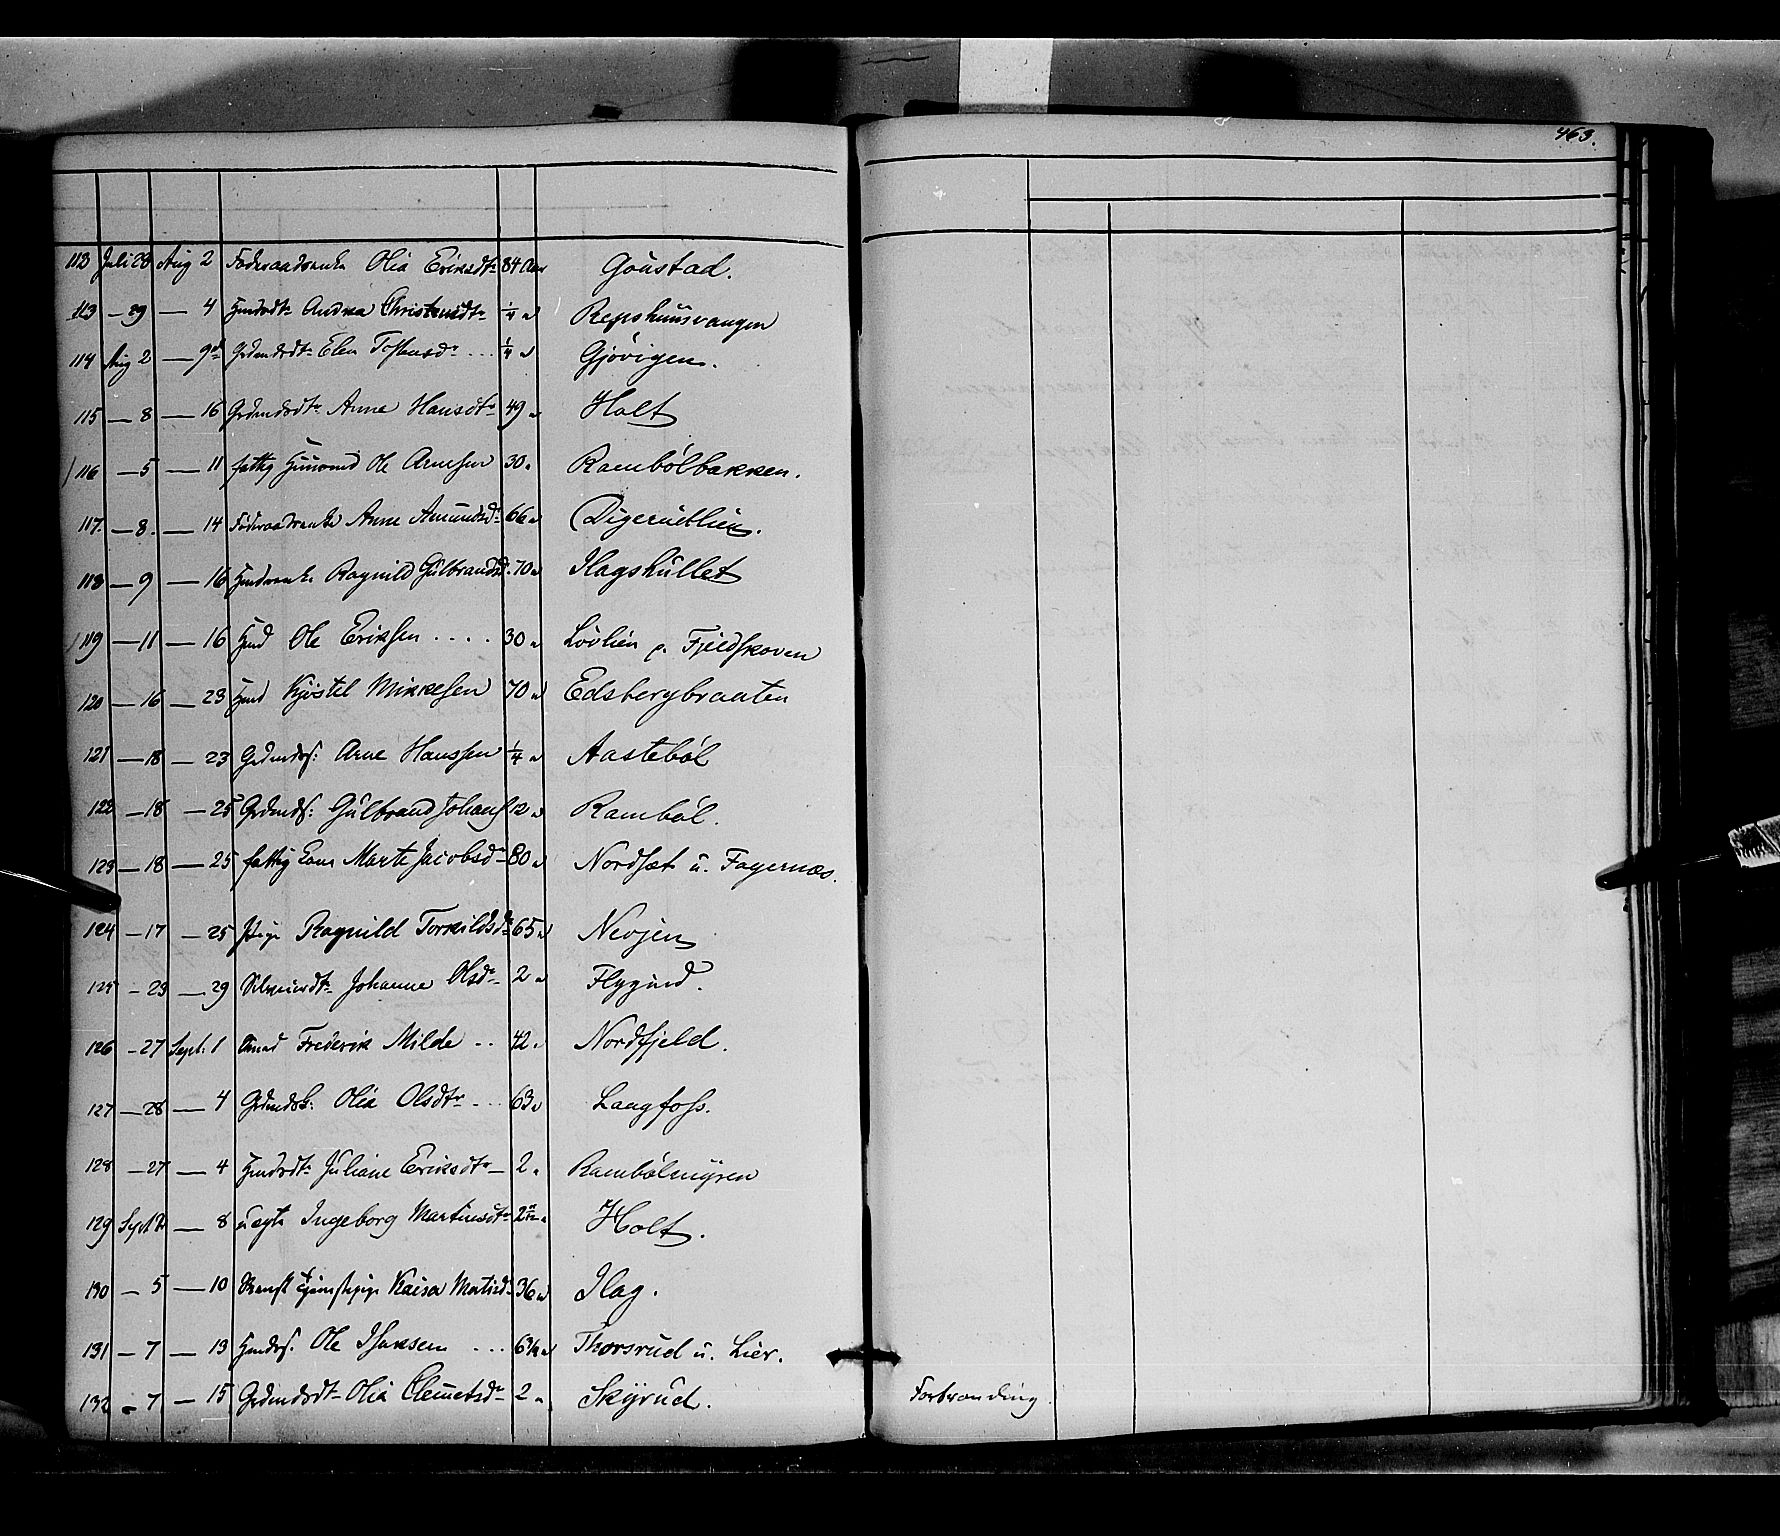 463.
113 Juli 28 Aug 2 Föderaadsenke Olia Eriksdtr 84 Aar Goustad.
113 — 29 — 4 Husmdtr Andrea Christensdtr ¼ " Repshuusvangen
114 Aug 2 — 9 Grdmdsdtr Elen Tostensdr ... ¼ " Gjövigen.
115 — 8 — 16 Grdmdsdtr Anne Hansdtr 49 " Holt
116 — 5 — 11 fattig Huusmd Ole Arnesen 30 " Rambölbakken.
117. — 8. — 14 Föderaadsenke Anne Amundsdr 66 " Digerudlien.
118 — 9 — 16 Husmdsenke Ragnild Gulbrandsd. 70 " Ilagshullet
119 — 11 — 16 Husmd Ole Eriksen .... 30 " Lövlien p. Fjeldskoven
120 — 16 — 23 Husmd Kjöstel Mikkelsen 70 " Edsbergbraaten
121 — 18 — 23 Grdmds: Arne Hanssen ¼ " Aasteböl
122 — 18 — 25 Grdmds: Gulbrand Johans 12 " Ramböl.
123 — 18 — 25 fattig Marte Jacobsdr 80 " Nordset u. Fagernæs.
124 — 17 — 25 Pige Ragnild Torkildsdr 65 " Nevjen
125 — 23 — 29 Johanne Olsdr 2 " Flygind.
126 — 27 Sept: 1 Frederik Milde .. 42 " Nordfjeld.
127 — 28 — 4 Olia Olsdtr ... 63 " Langfoss.
128 — 27 — 4 Husmdsdtr Juliane Eriksdtr — 2 " Rambölmyren
129 Sept 2 — 8 uægte Ingeborg Martinsdtr Holt.
130 — 5 — 10 Svensk Tjenestepige Kaisa 36 " Ilag.
131 — 7 — 13 Husmds. Ole Isaksen ... Thorsrud u. Lier.
132 — 7 — 15 Grdmdsdtr Olia Clemetsdr 2 " Skyrud. Forbrænding.